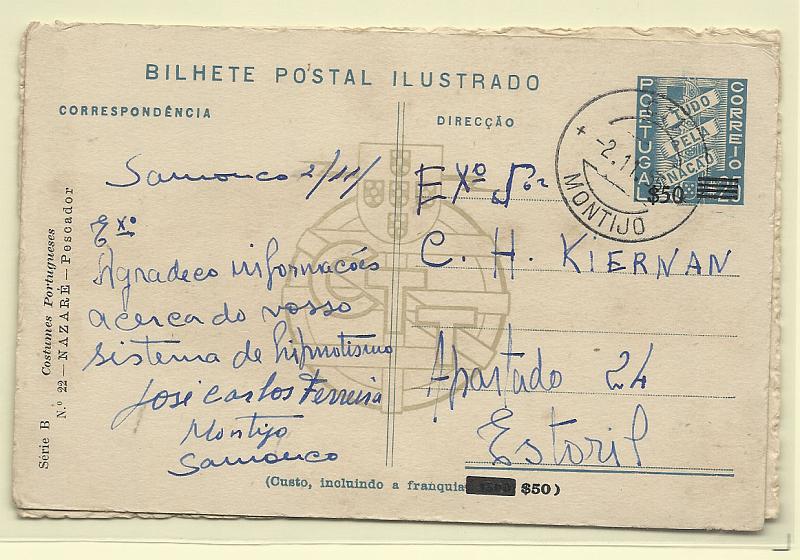 BILHETE POSTAL ILUSTRADO
CORRESPONDÊNCIA
Samouco 2/11/
Exº
Agradeco informacões
acerca do vosso
sistema de hipnotismo
José Carlos Ferreira
Montijo
Samouco
DIRECÇÃO
EXº Snr
C. H. KIERNAN
Apartado 24
Estoril
PORTUGAL
CORREIO
TUDO
PELA
NAÇÃO
$50
25
-2.11
MONTIJO
CTT
(Custo, incluindo a franquia $50)
Série B Costumes Portugueses
N.º 22 — NAZARÉ — Pescador